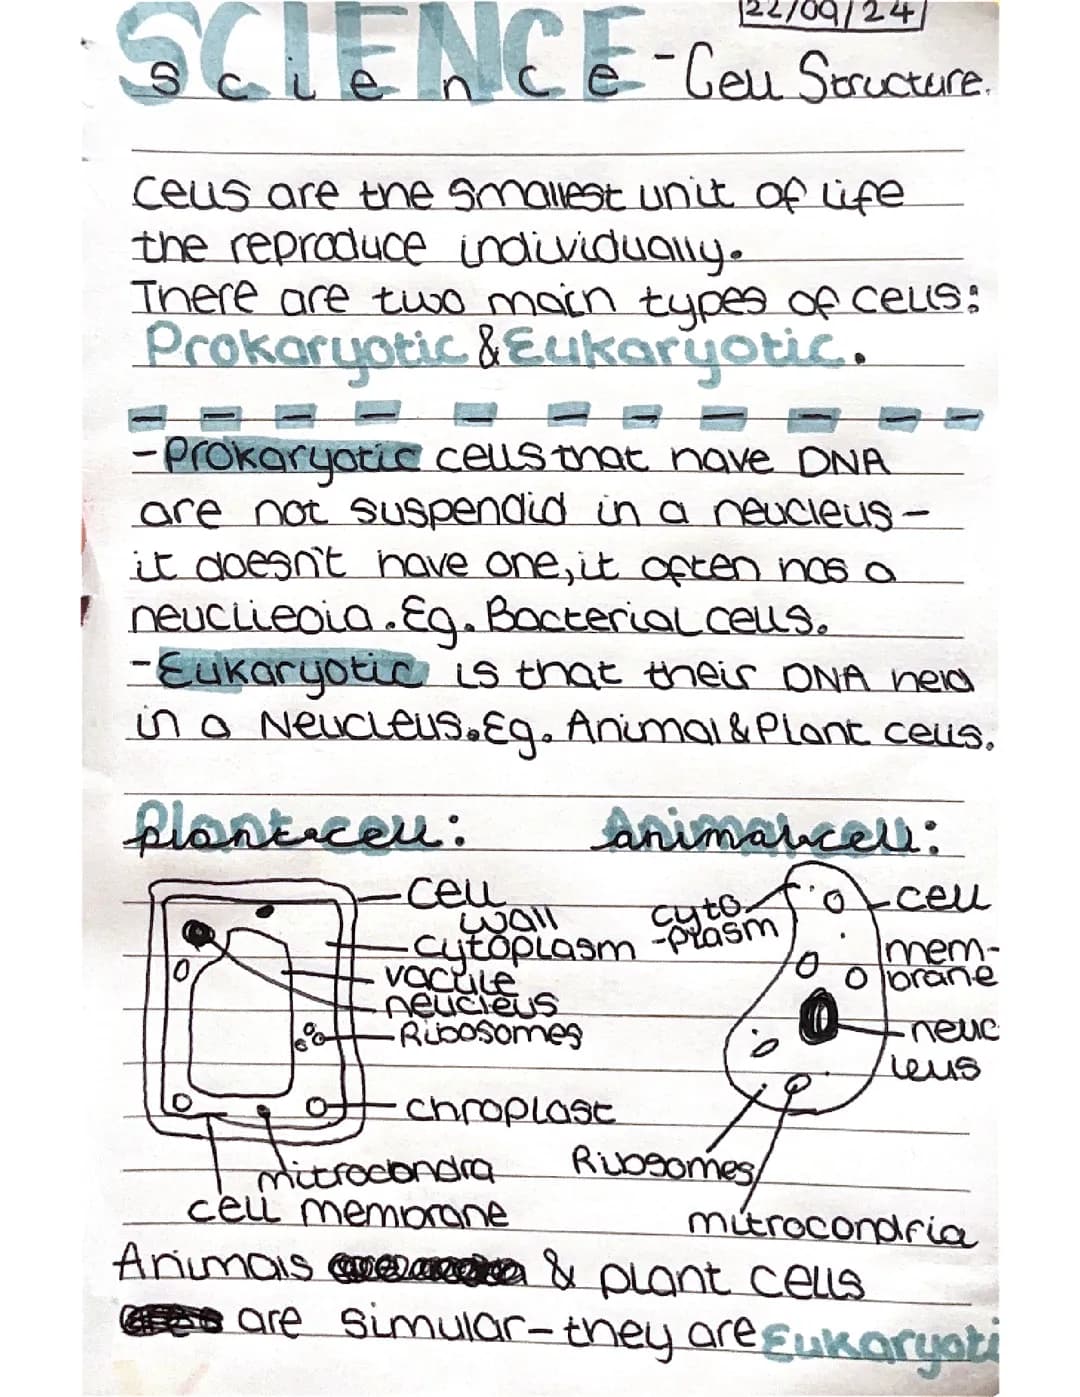 22/09/24
SCIENCE
science - Cell Structure.
Cells are the smallest unit of life
the reproduce individually.
There are two main types of cells:
Prokaryotic & Eukaryotic.
- Prokaryotic cells that have DNA
are not suspendid in a neucleus -
it doesn't have one, it often has a
neuclieoia. Eg. Bacterial cells.
- Eukaryotic is that their DNA held
in a Neucleus. Eg. Animal & Plant cells.
Plant cell:
Animal cell:
cell
wall
cytoplasm
vacule
neucleus
Ribosomes
chroplast
mitrocondra
cell membrane
cyto
-plasm
cell
mem-
brane
neuc
leus
Ribosomes
mitrocondria
Animals & plant cells
are simular - they are Eukaryoti